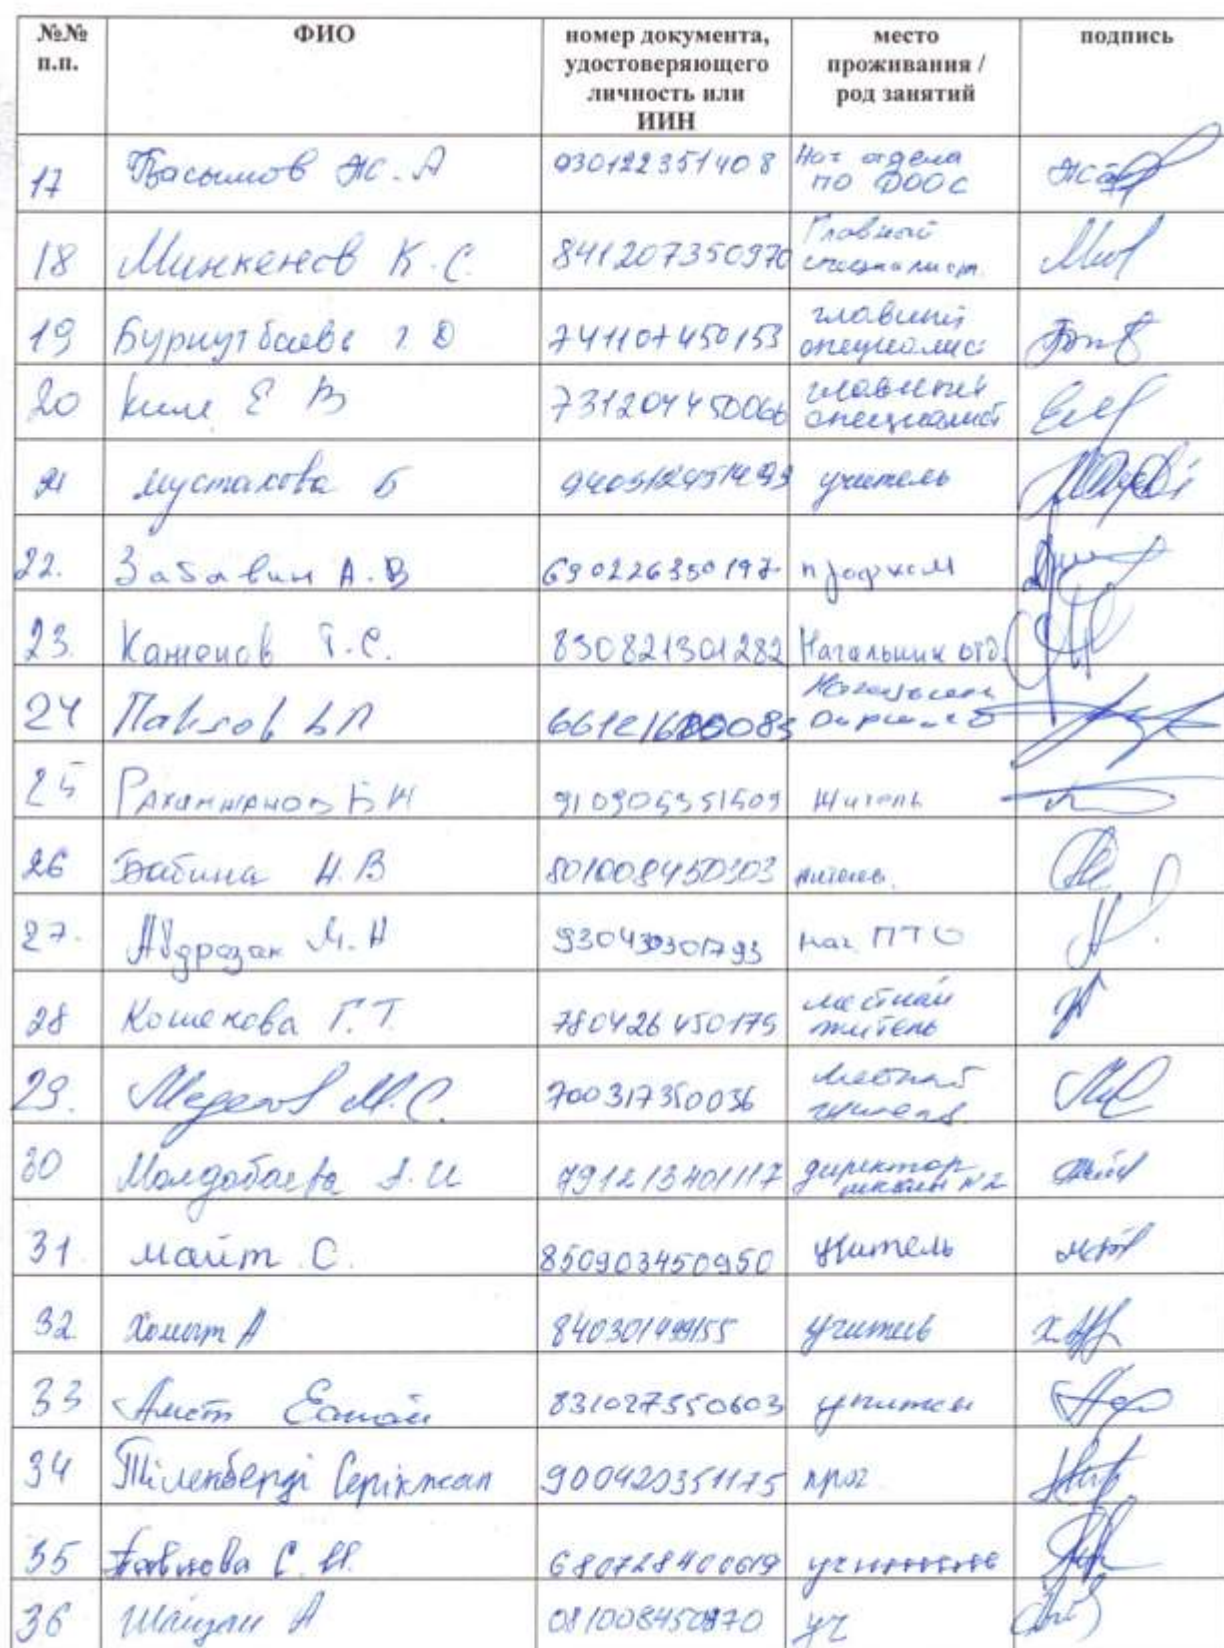 №№ п.п. ФИО номер документа, удостоверяющего личность или ИИН место проживания / род занятий подпись
17 Касымов Ж.А 930122351408 Нач отдела по ДООС
18 Минкенов К.С. 841207350970 Главный специалист
19 Бурнутбаева Г Д 741107450153 главный специалист
20 Ким Е В 731204450066 главный специалист
21 Мустакова Б учитель
22. Забавин А.В 690226350197 профком
23. Каженов Т.С. 830821301282 Начальник отд.
24 Павлов
25 Рахимжанов Б 910905351509 Житель
26 Бабина Н.В 801008450303 житель
27. Абдразак М.Н 930430301793 нач ПТО
28 Кошекова Г.Т. 780426450175 местный житель
29. М.С. 700317350036 местный житель
30 Молдабаева 791213401117 директор школы №2
31. Майт С. 850903450950 учитель
32 А учитель
33 831027350603 учитель
34 Тіленберді Серікжан 900420351175
35 Павлова С. 680728400619 учитель
36 А 081008450870 уч